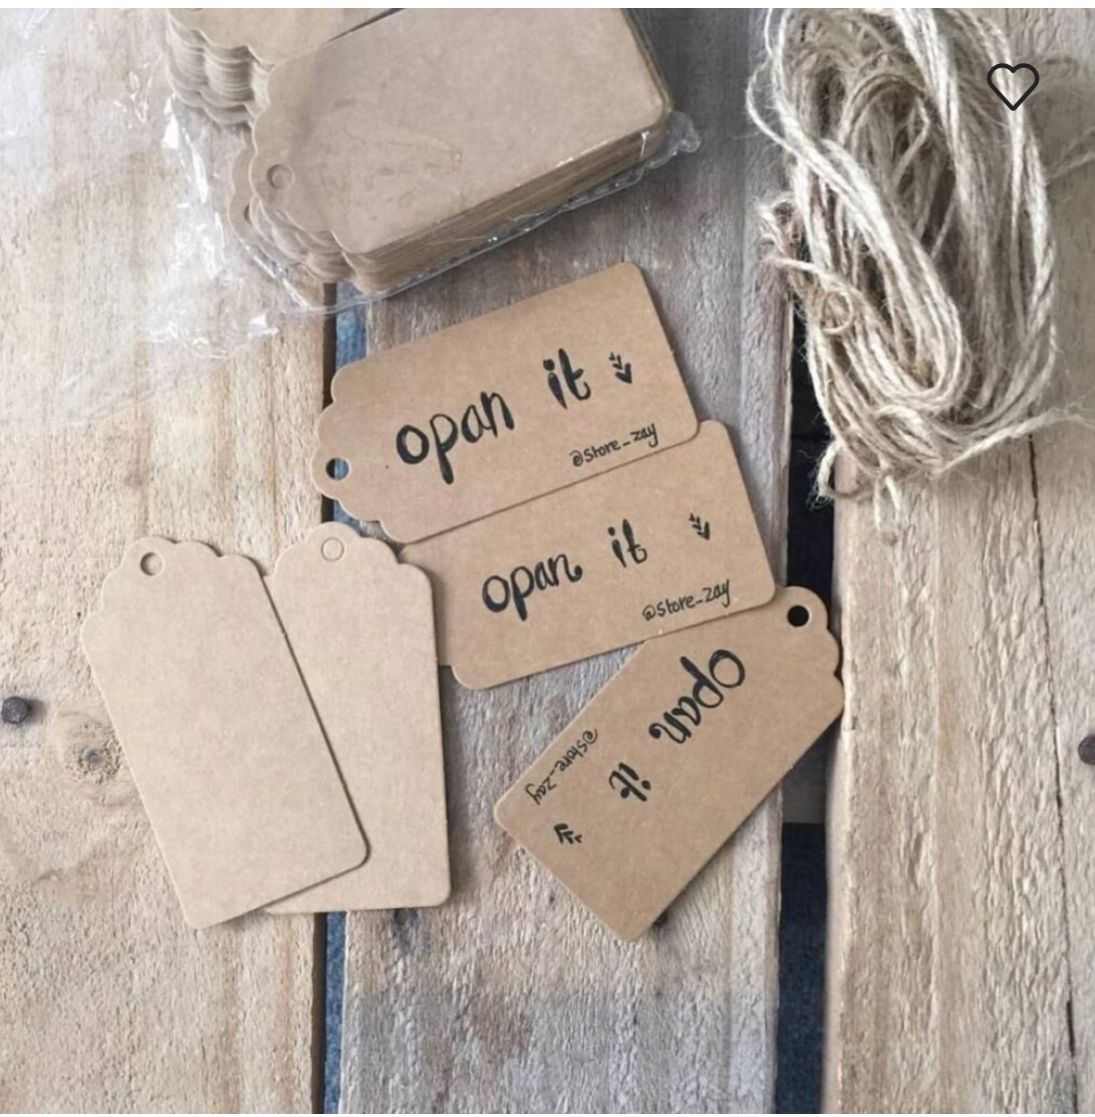 opan it
@store_zay
opan it
@store_zay
opan
it
@store_zay